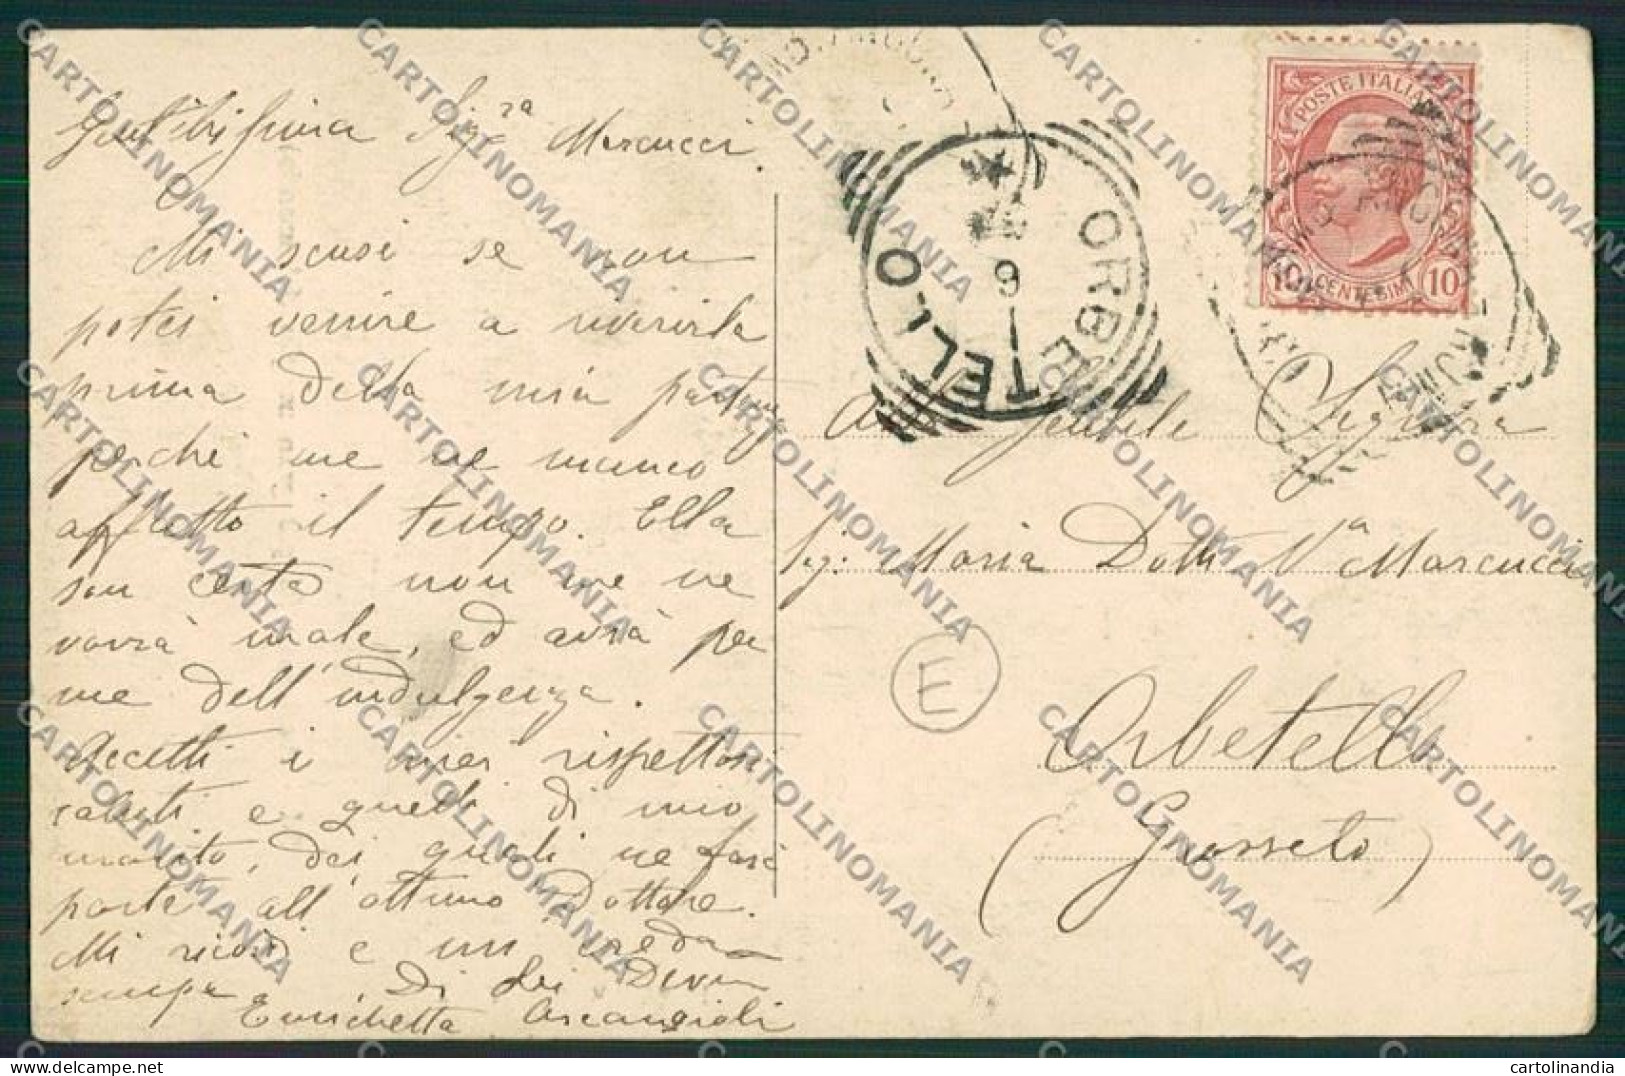 Gentilissima Sig.ra Marcucci.
Mi scusi se non
potei venire a riverirla
prima della mia partenza
perchè me ne mancò
affatto il tempo. Ella
son certa non me ne
vorrà male, ed avrà per
me dell'indulgenza.
Accetti i miei rispettosi
saluti e quelli di mio
marito, dei quali ne farà
parte all'ottimo Dottore.
Mi ricordi e mi creda
sempre Di Lei Dev.ma
Enrichetta Arcangioli
POSTE ITALIANE
10 CENTESIMI 10
ORBETELLO
9
Alla Gentile Signora
Sig: Maria Dotti Va Marcucci
E
Orbetello
(Grosseto)
CARTOLINOMANIA
cartolinandia